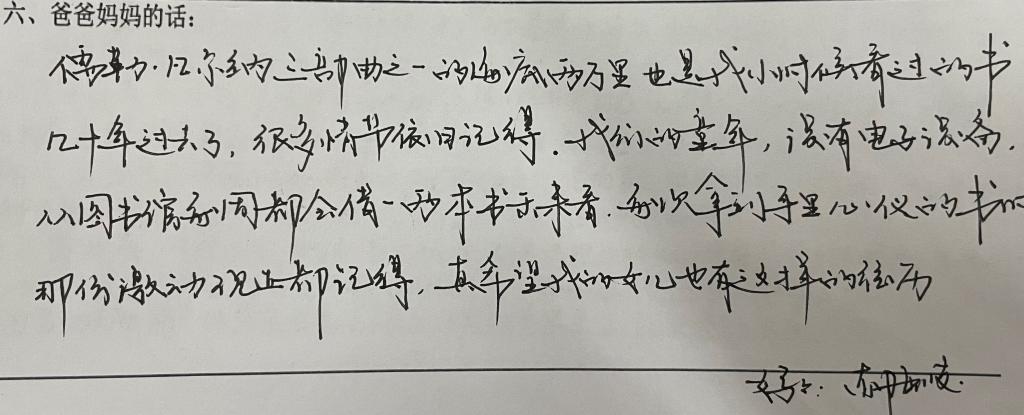 六、爸爸妈妈的话:
儒勒·凡尔纳三部曲之一的海底两万里也是我小时候看过的书
几十年过去了,很多情节依旧记得.我们的童年,没有电子设备,
从图书馆每周都会借一两本书来看.每次拿到手里心仪的书的
那份激动现在都记得,真希望我的女儿也有这样的经历
妈妈: